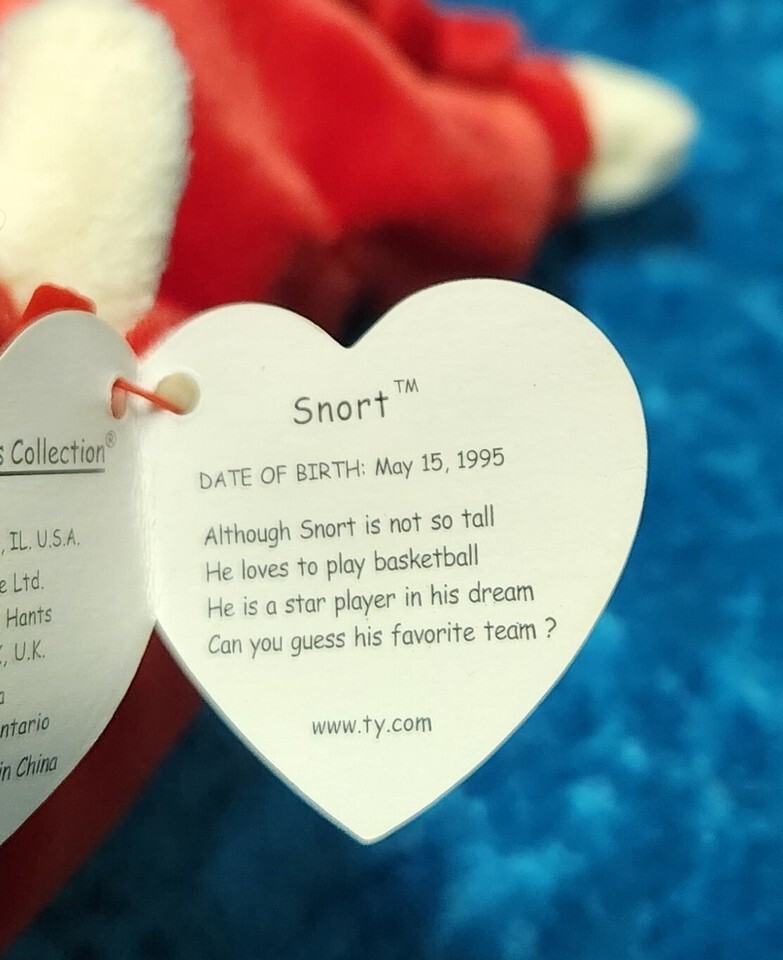 s Collection®
, IL. U.S.A.
e Ltd.
Hants
, U.K.
a
ntario
in China
Snort™
DATE OF BIRTH: May 15, 1995
Although Snort is not so tall
He loves to play basketball
He is a star player in his dream
Can you guess his favorite team ?
www.ty.com